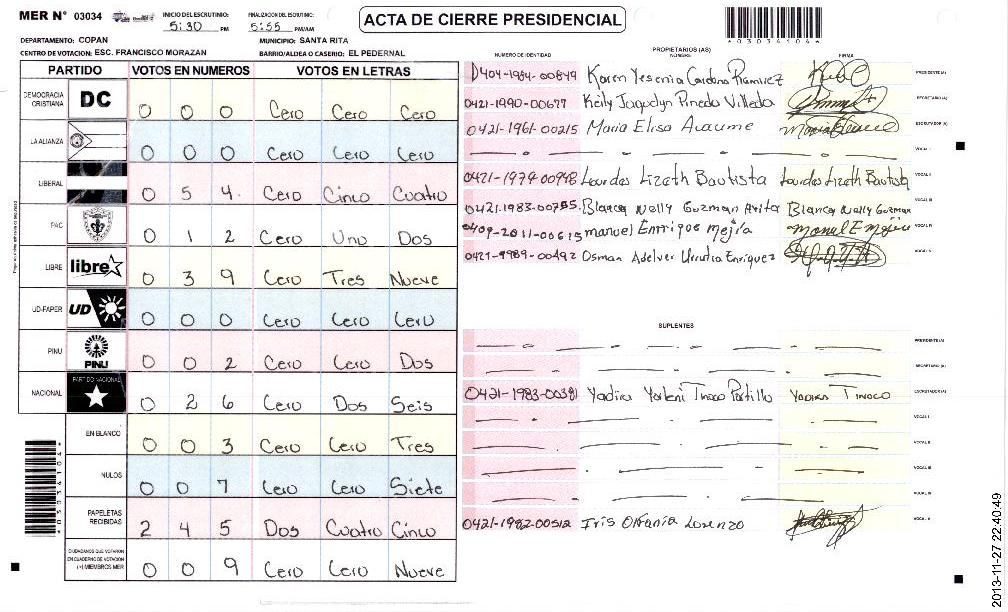 MER N° 03034
INICIO DEL ESCRUTINIO: 5:30 PM
FINALIZACION DEL ESCRUTINIO: 5:55 PM/AM
ACTA DE CIERRE PRESIDENCIAL
*03034104*
DEPARTAMENTO: COPAN
MUNICIPIO: SANTA RITA
CENTRO DE VOTACION: ESC. FRANCISCO MORAZAN
BARRIO/ALDEA O CASERIO: EL PEDERNAL
PARTIDO VOTOS EN NUMEROS VOTOS EN LETRAS
DEMOCRACIA CRISTIANA DC 0 0 0 Cero Cero Cero
LA ALIANZA 0 0 0 Cero Cero Cero
LIBERAL 0 5 4. Cero Cinco Cuatro
PAC 0 1 2 Cero Uno Dos
LIBRE libre 0 3 9 Cero Tres Nueve
UD-FAPER UD 0 0 0 Cero Cero Cero
PINU PINU 0 0 2 Cero Cero Dos
NACIONAL PARTIDO NACIONAL 0 2 6 Cero Dos Seis
EN BLANCO 0 0 3 Cero Cero Tres
NULOS 0 0 7 Cero Cero Siete
PAPELETAS RECIBIDAS 2 4 5 Dos Cuatro Cinco
CIUDADANOS QUE VOTARON EN CUADERNO DE VOTACION (+) MIEMBROS MER 0 0 9 Cero Cero Nueve
*03034104*
PROPIETARIOS (AS)
NUMERO DE IDENTIDAD NOMBRE FIRMA
0404-1984-00849 Karen Yesenia Cardona Ramirez PRESIDENTE(A)
0421-1990-00677 Keily Jaquelyn Pineda Villeda SECRETARIO (A)
0421-1961-00215 Maria Elisa ESCRUTADOR (A)
VOCAL I
0421-1979-00948 Lourdes Lizeth Bautista Lourdes Lizeth Bautista VOCAL II
0421-1983-00785. Blanca Nelly Guzman Blanca Nelly Guzman VOCAL III
0409-2011-00615 manuel Enrrique Mejía Manuel E Mejia VOCAL IV
0421-1989-00492 Osman Adelver Urrutia Enriquez VOCAL V
SUPLENTES
PRESIDENTE(A)
SECRETARIO (A)
0421-1983-00381 Yadira Yorleni Tinoco Portillo Yadira Tinoco ESCRUTADOR (A)
VOCAL I
VOCAL II
VOCAL III
VOCAL IV
0421-1982-00512 Iris Lorenzo VOCAL V
2013-11-27 22:40:49